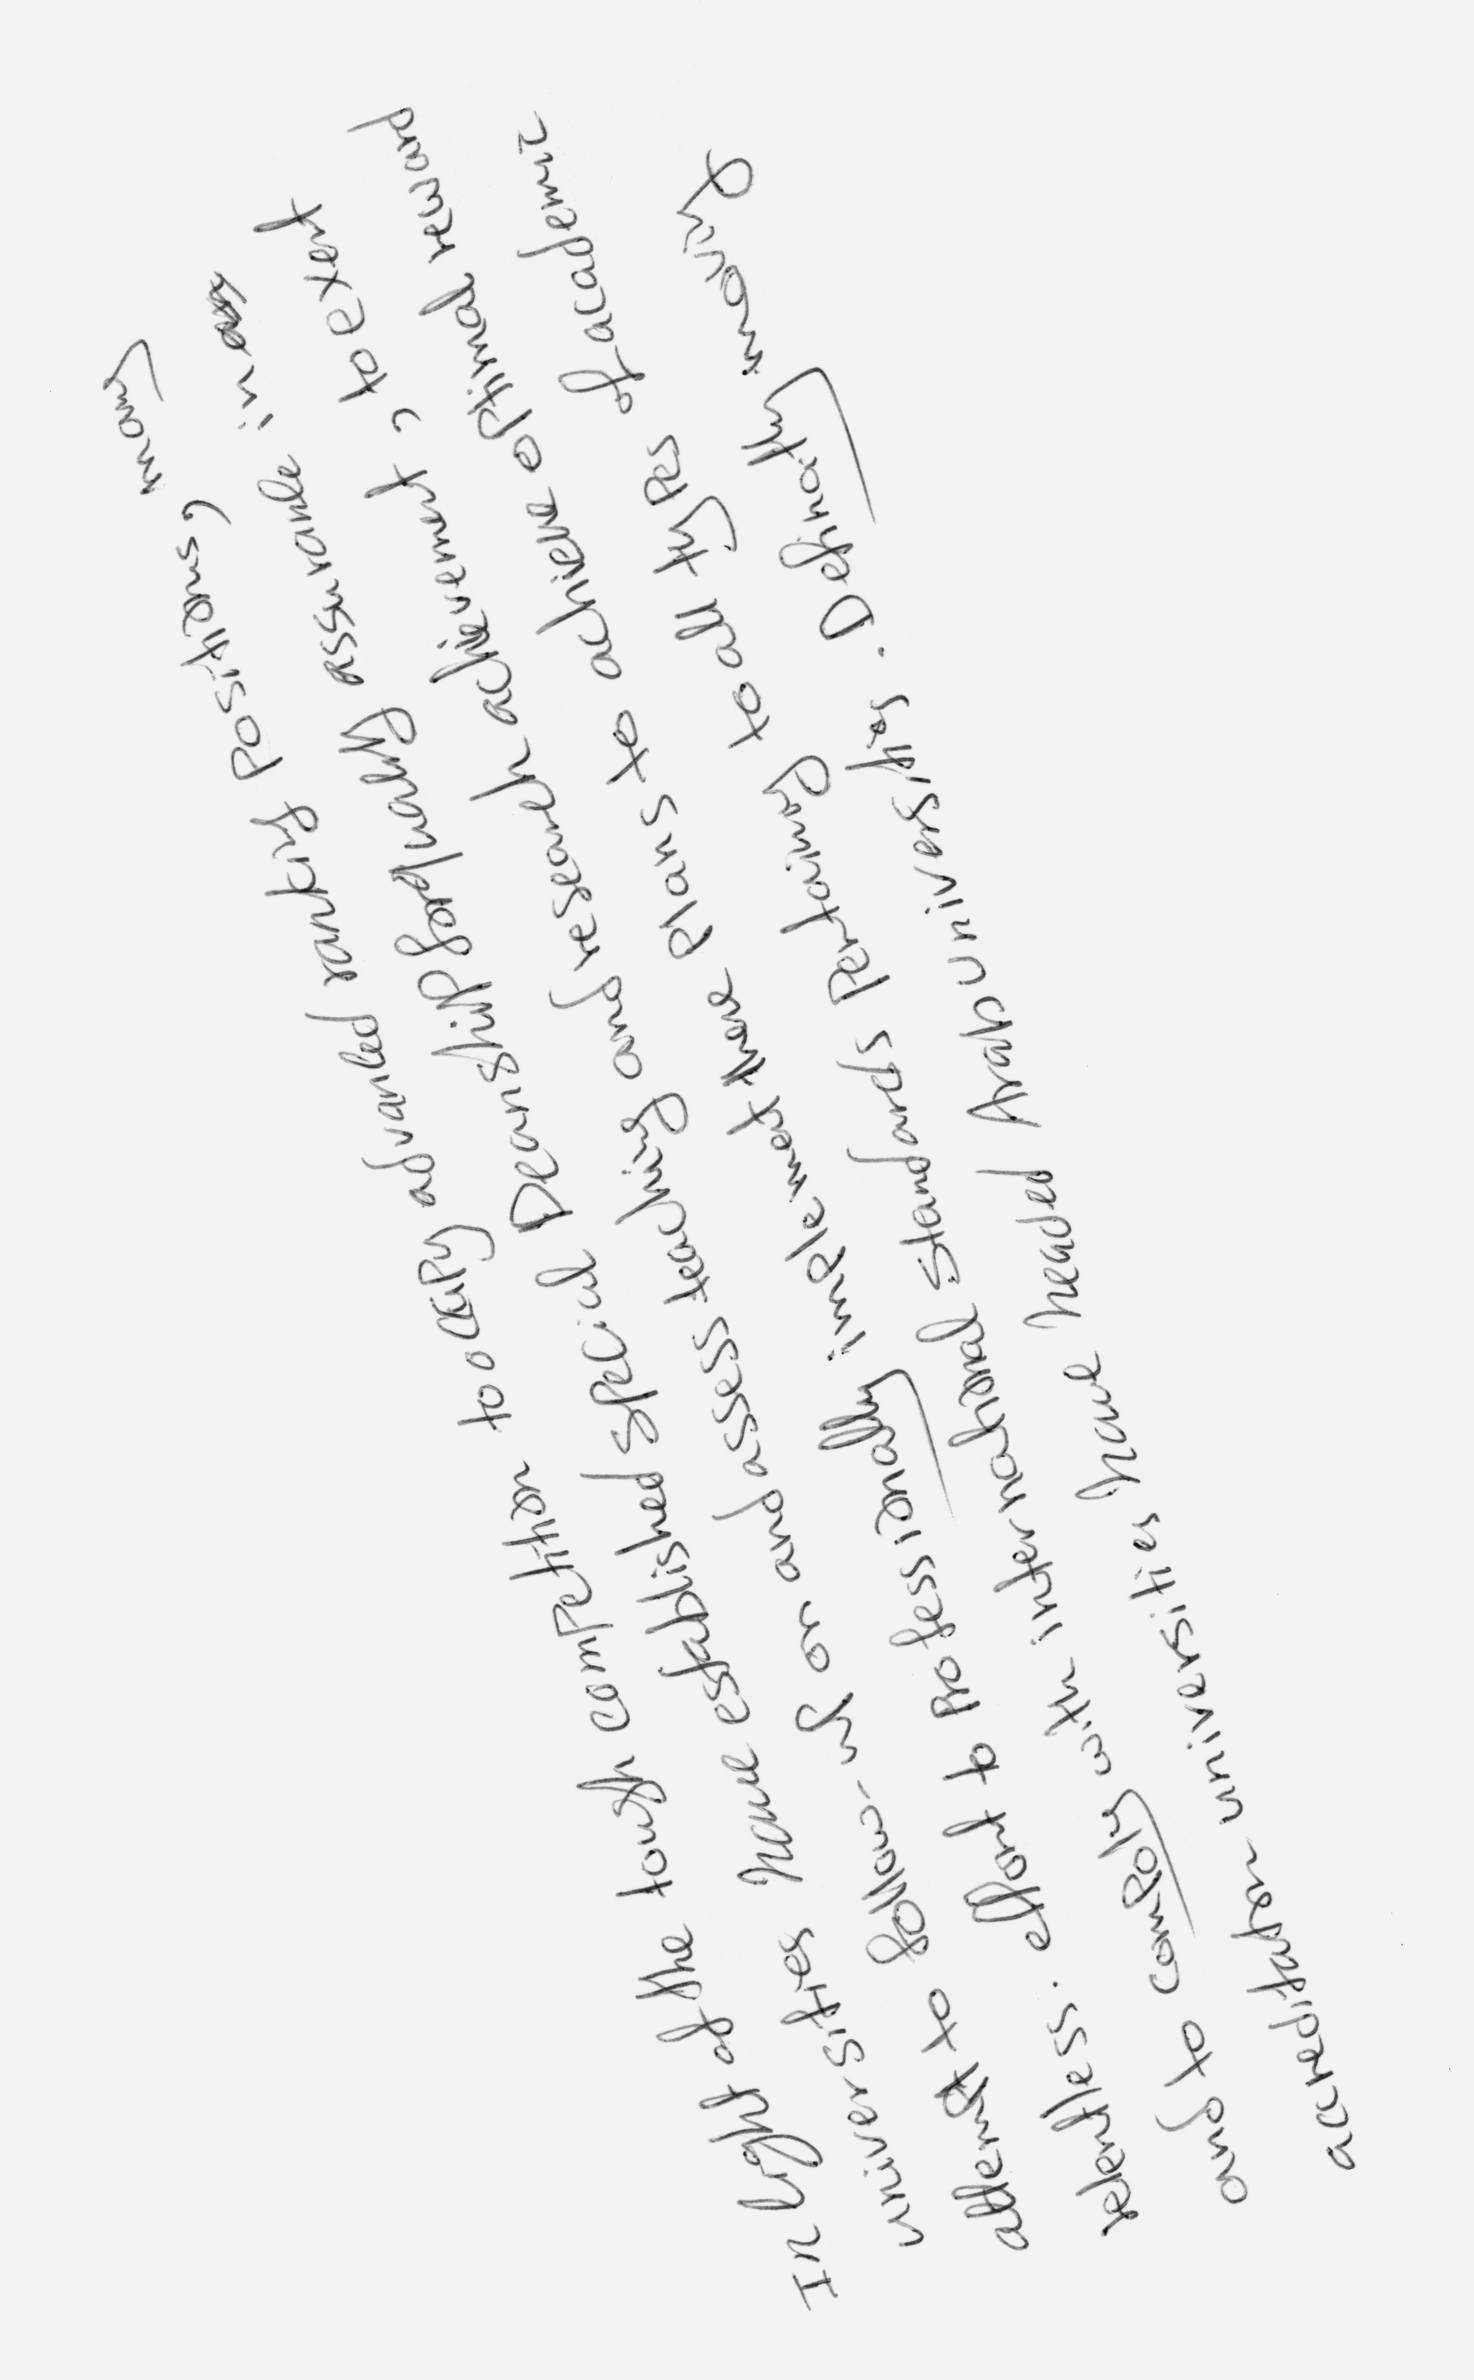 In light of the tough competition to occupy advanced ranking Positions, many
universities have established special Deanship for eduality assurance in an
attempt to follow-up on and assess teaching and research achievement, to exert
relentless. effort to Professionally implement thore plans to achieve optimal reward
and to compoly with international standards Pertaining to all types of academic
accreditation universities have headed Arab universities. Definatly moving